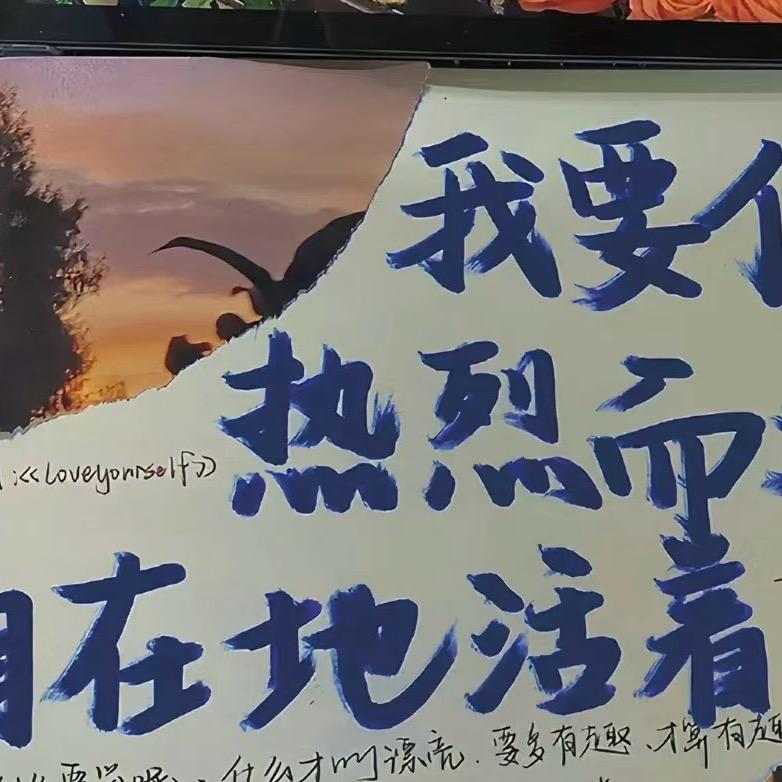 我要
热烈而
<<loveyourself>>
自在地活着
什么才叫漂亮.要多有趣、才算有趣